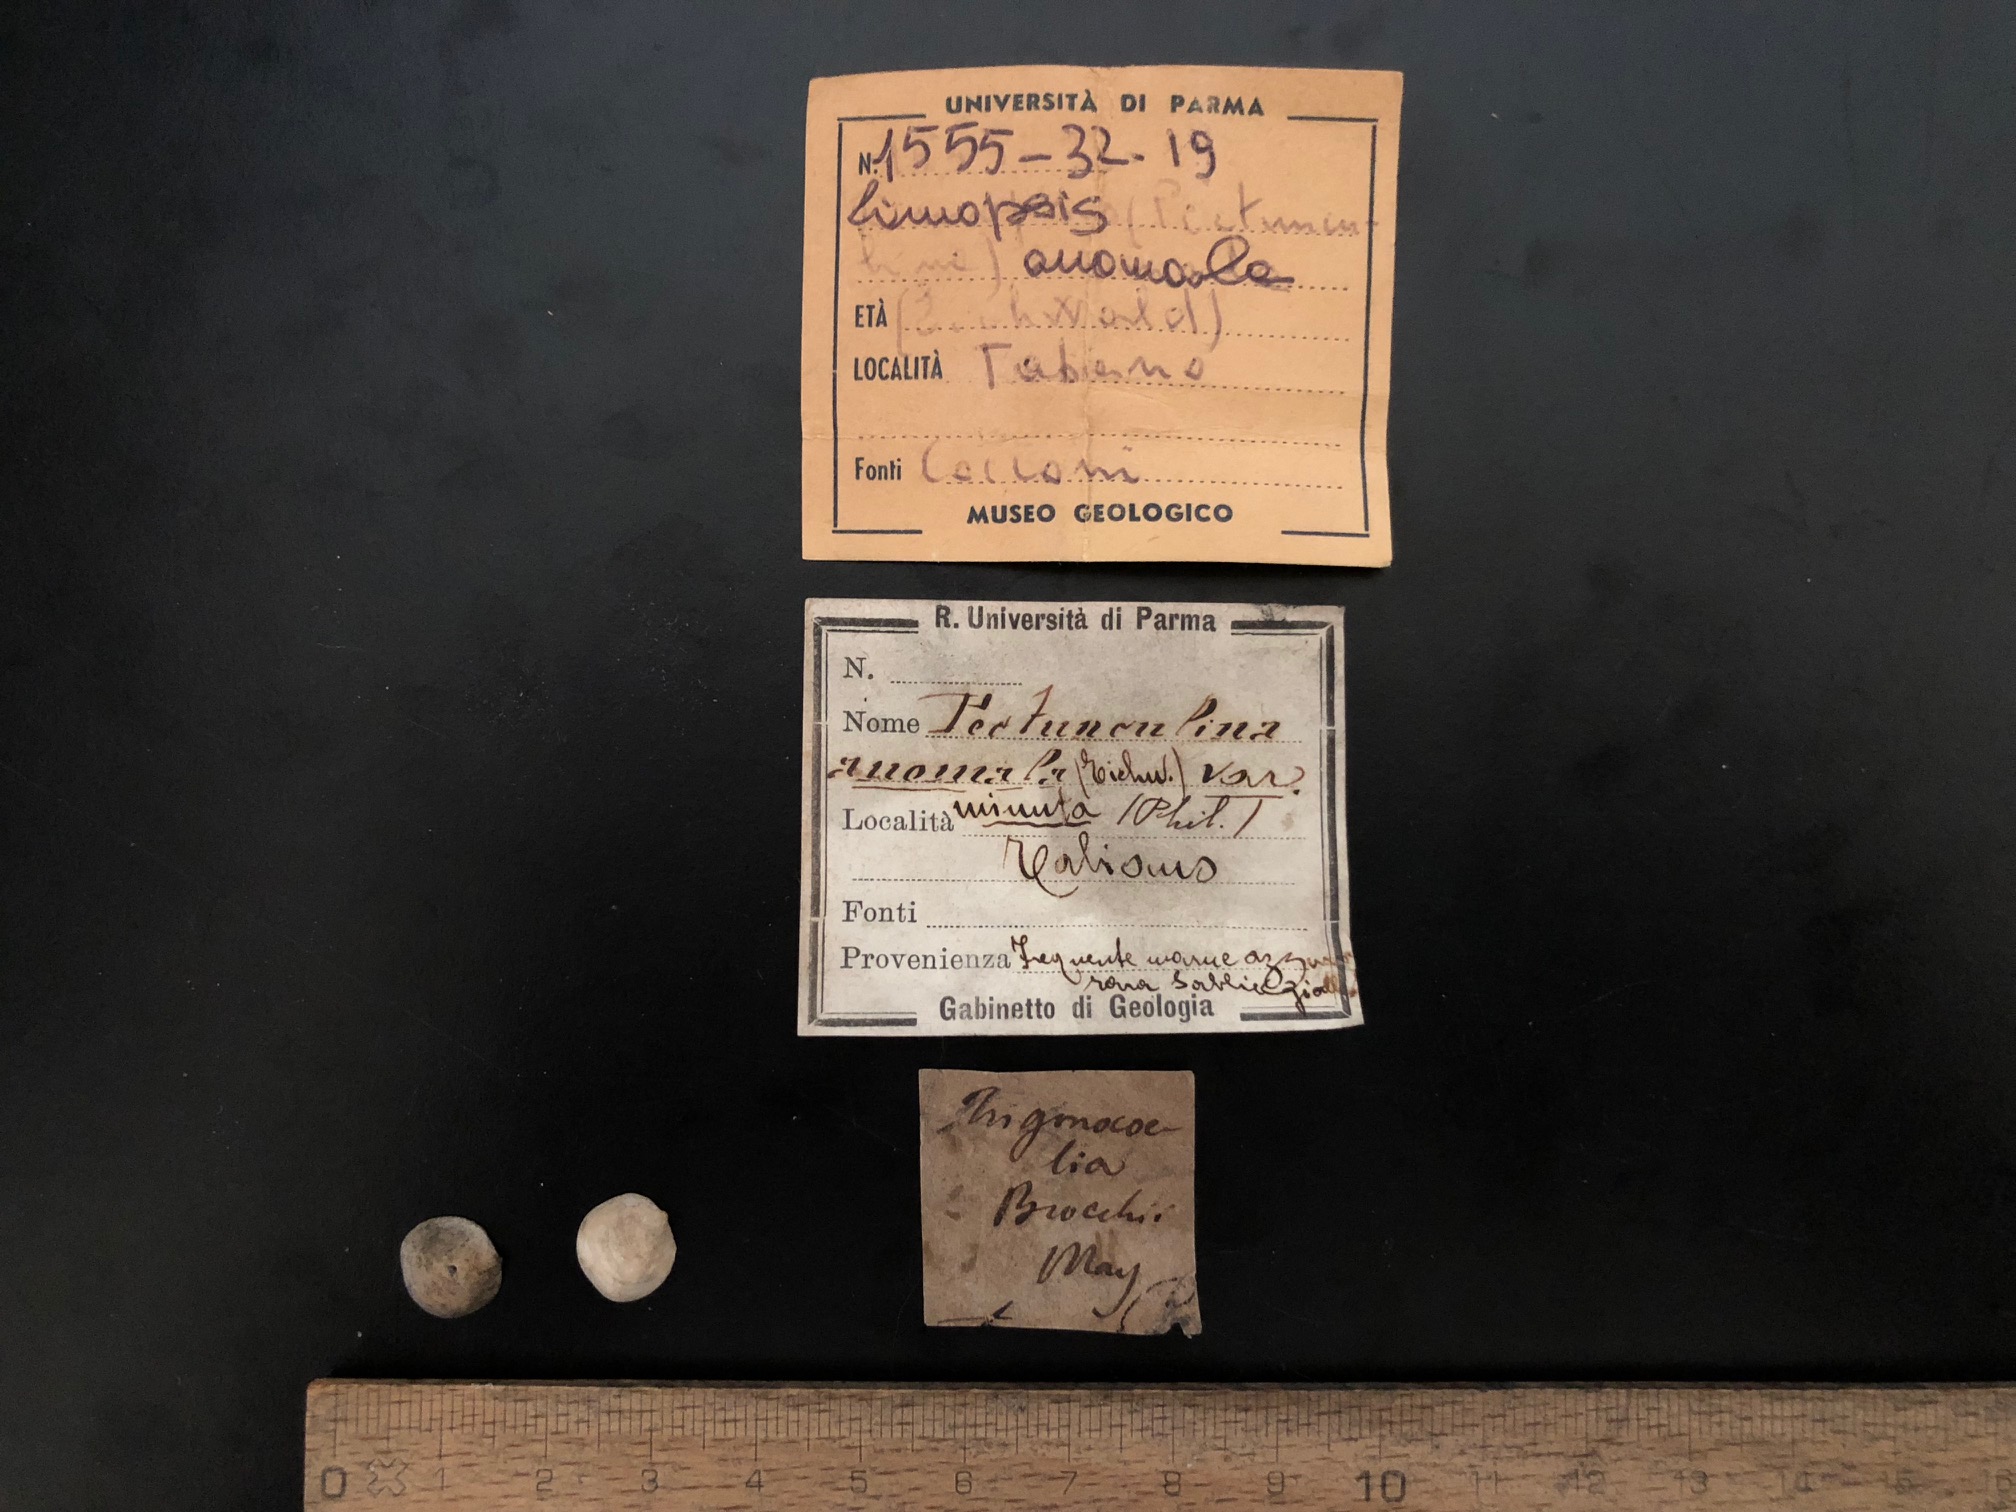 UNIVERSITÀ DI PARMA
N. 1555-32-19
Limopsis (Pectuncu-
lina) anomala
ETÀ (Eichwald)
LOCALITÀ Tabiano
Fonti Cocconi
MUSEO GEOLOGICO
R. Università di Parma
N.
Nome Pectunculina
anomala (Eichw.) var.
Località minuta (Phil.)
Tabiano
Fonti
Provenienza Frequente marne azzurre
rara sabbie gialle
Gabinetto di Geologia
Trigonocoe-
lia
Brocchii
May
0 1 2 3 4 5 6 7 8 9 10 11 12 13 14 15 16